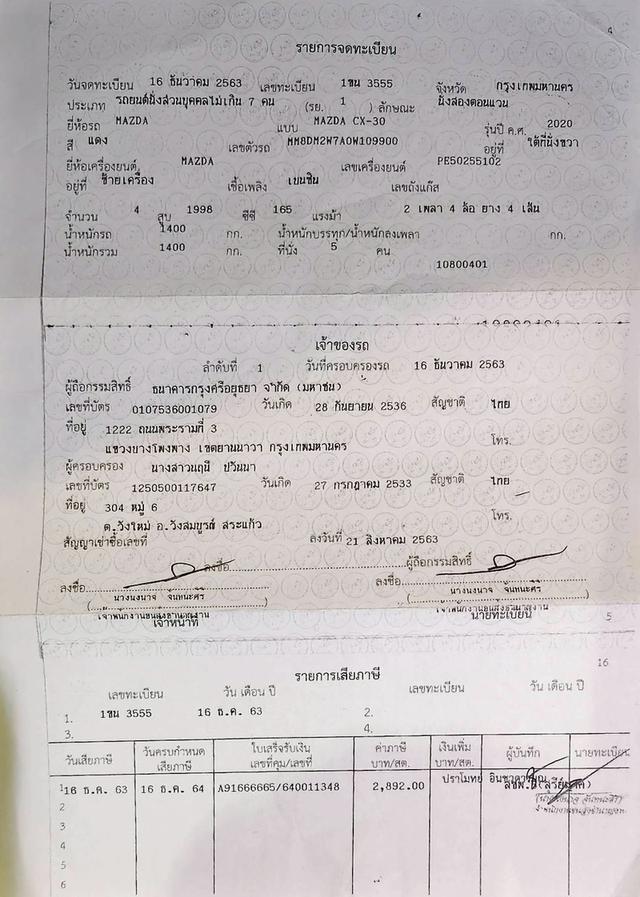 4
รายการจดทะเบียน
วันจดทะเบียน 16 ธันวาคม 2563 เลขทะเบียน 1ขน 3555 จังหวัด กรุงเทพมหานคร
ประเภท รถยนต์นั่งส่วนบุคคลไม่เกิน 7 คน (รย. 1 ) ลักษณะ นั่งสองตอนแวน
ยี่ห้อรถ MAZDA แบบ MAZDA CX-30 รุ่นปี ค.ศ. 2020
สี แดง เลขตัวรถ MM8DM2W7A0W109900 อยู่ที่ ใต้ที่นั่งขวา
ยี่ห้อเครื่องยนต์ MAZDA เลขเครื่องยนต์ PE50255102
อยู่ที่ ซ้ายเครื่อง เชื้อเพลิง เบนซิน เลขถังแก๊ส
จำนวน 4 สูบ 1998 ซีซี 165 แรงม้า 2 เพลา 4 ล้อ ยาง 4 เส้น
น้ำหนักรถ 1400 กก. น้ำหนักบรรทุก/น้ำหนักลงเพลา กก.
น้ำหนักรวม 1400 กก. ที่นั่ง 5 คน
10800401
เจ้าของรถ
ลำดับที่ 1 วันที่ครอบครองรถ 16 ธันวาคม 2563
ผู้ถือกรรมสิทธิ์ ธนาคารกรุงศรีอยุธยา จำกัด (มหาชน)
เลขที่บัตร 0107536001079 วันเกิด 28 กันยายน 2536 สัญชาติ ไทย
ที่อยู่ 1222 ถนนพระรามที่ 3 โทร.
แขวงบางโพงพาง เขตยานนาวา กรุงเทพมหานคร
ผู้ครอบครอง นางสาวนฤนี ปวินนา
เลขที่บัตร 1250500117647 วันเกิด 27 กรกฎาคม 2533 สัญชาติ ไทย
ที่อยู่ 304 หมู่ 6 โทร.
ต.วังใหม่ อ.วังสมบูรณ์ สระแก้ว
สัญญาเช่าซื้อเลขที่ ลงวันที่ 21 สิงหาคม 2563
ลงชื่อ ผู้ถือกรรมสิทธิ์
ลงชื่อ ลงชื่อ
นางนงนาจ จันทนะศิริ นางนงนาจ จันทนะศิริ
เจ้าพนักงานขนส่งชำนาญงาน เจ้าพนักงานขนส่งชำนาญงาน
เจ้าหน้าที่ นายทะเบียน
5
16
รายการเสียภาษี
เลขทะเบียน วัน เดือน ปี เลขทะเบียน วัน เดือน ปี
1. 1ขน 3555 16 ธ.ค. 63 2.
3. 4.
วันเสียภาษี วันครบกำหนดเสียภาษี ใบเสร็จรับเงิน เลขที่คุม/เลขที่ ค่าภาษี บาท/สต. เงินเพิ่ม บาท/สต. ผู้บันทึก นายทะเบียน
1 16 ธ.ค. 63 16 ธ.ค. 64 A91666665/640011348 2,892.00 ปราโมทย์
2
3
4
5
6